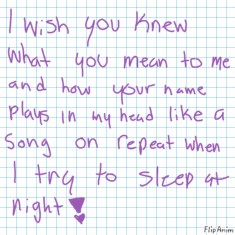 I wish you knew
What you mean to me
and how your name
plays in my head like a
song on repeat when
I try to sleep at
night!
FlipAnim